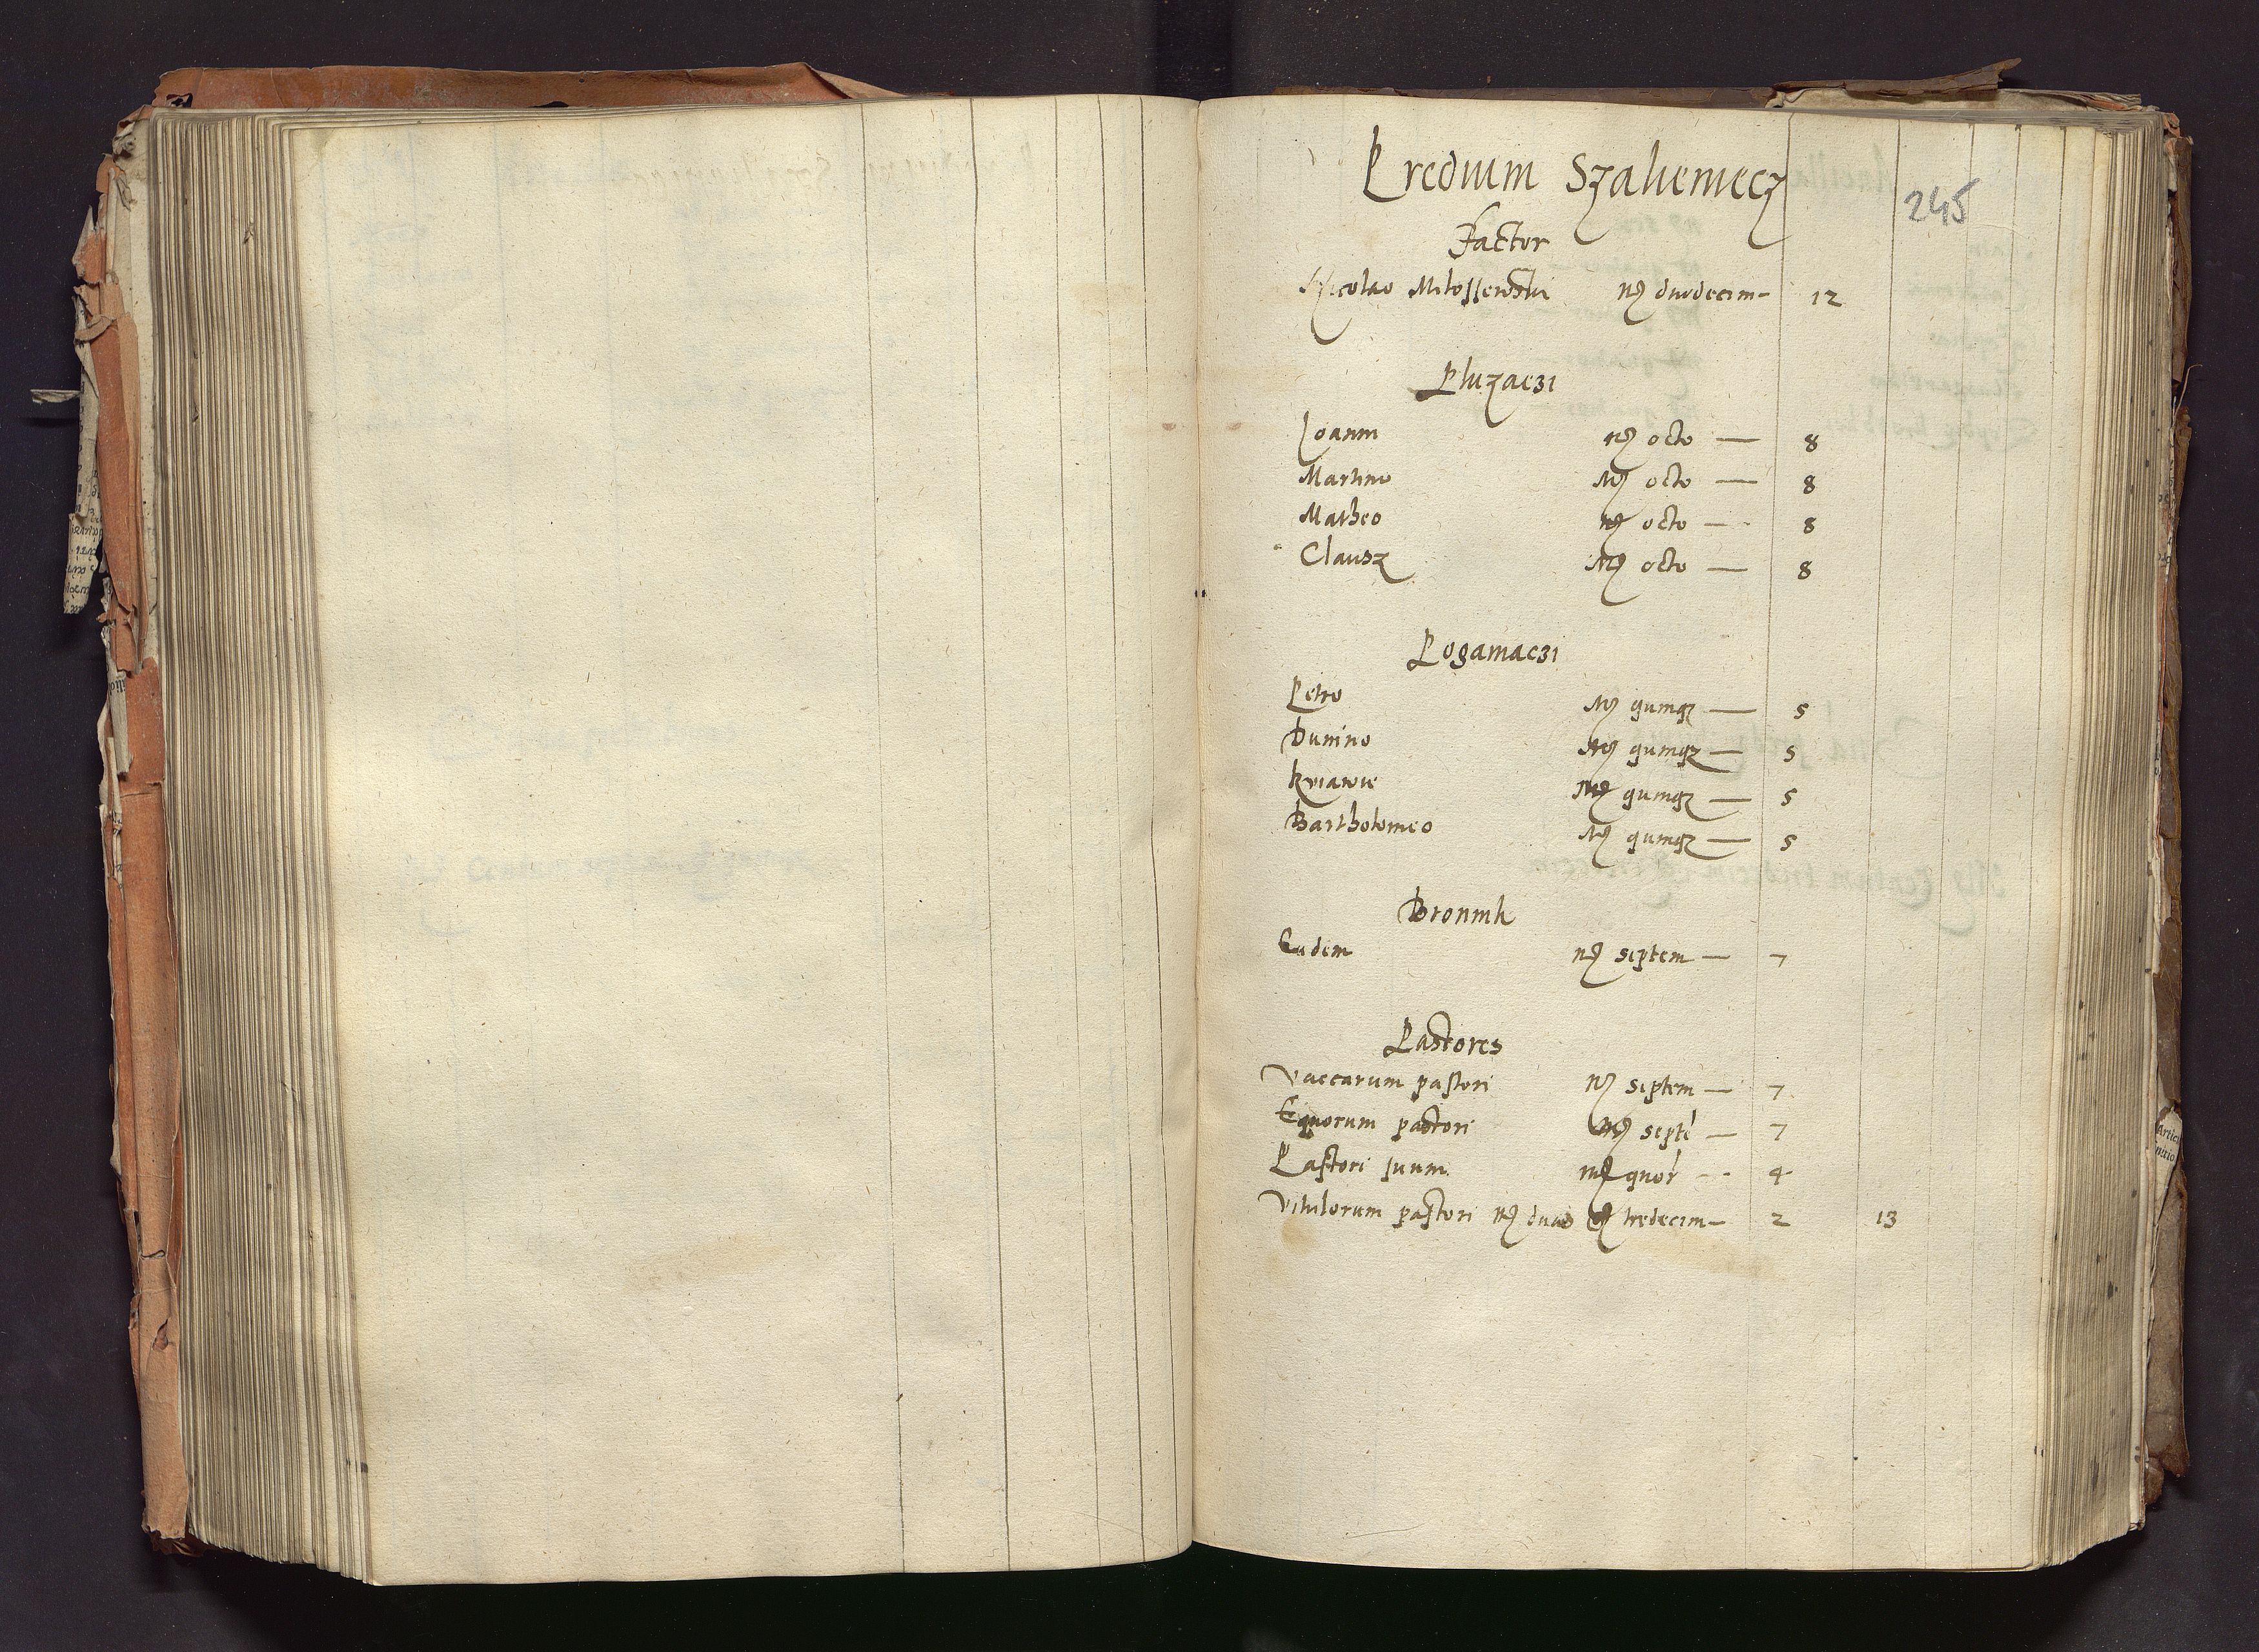 Predium Szalieniecz
245
Factor
Nicolao Milossewski mꝝ duodecim — 12
Pluzaczi
Joanni mꝝ octo — 8
Martino mꝝ octo — 8
Matheo mꝝ octo — 8
Clausz mꝝ octo — 8
Poganiaczi
Petro mꝝ quinqꝫ — 5
Dunino mꝝ quinqꝫ — 5
mꝝ quinqꝫ — 5
Bartholomeo mꝝ quinqꝫ — 5
Bronnik
Eidem mꝝ septem — 7
Pastores
Vaccarum pastori mꝝ septem — 7
Equorum pastori mꝝ septē — 7
Pastori suum mꝝ quor — 4
Vitulorum pastori mꝝ duas tredecim — 2 13